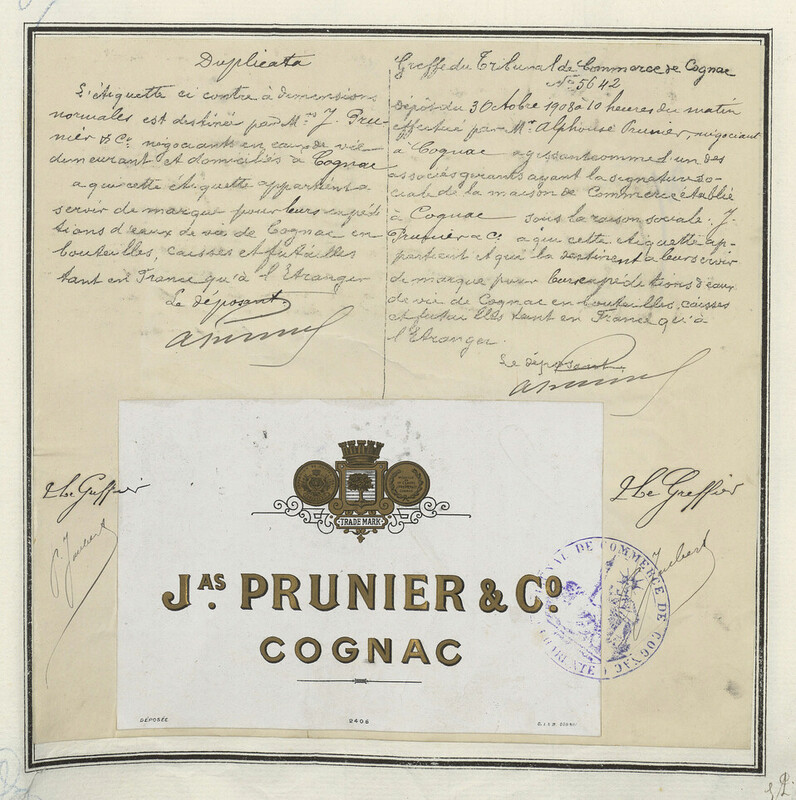 Duplicata
L'étiquette ci contre à dimensions
normales est destinée par Mrs J. Pru-
nier & Co négociants en eaux de vie
demeurant et domiciliés à Cognac
a qui cette étiquette appartient a
servir de marque pour leurs expédi
tions d'eaux de vie de Cognac en
bouteilles, caisses et futailles
tant en France qu'à l'Etranger
Le déposant
Greffe du Tribunal de Commerce de Cognac
No 5642
Dépôt du 3 Octobre 1908 à 10 heures du matin
effectué par Mr Alphonse Prunier, négociant
à Cognac agissant comme l'un des
associés gérants ayant la signature so-
ciale de la maison de Commerce établie
à Cognac sous la raison sociale: J.
Prunier & Co à qui cette étiquette ap-
partient et qui la destinent a leur servir
de marque pour leurs expéditions d'eaux
de vie de Cognac en bouteilles, caisses
et futailles tant en France qu'à
l'Etranger.
Le déposant
Le Greffier
Le Greffier
TRADE MARK
JAS. PRUNIER & Co.
COGNAC
DÉPOSÉE
2406
DE COMMERCE DE COGNAC